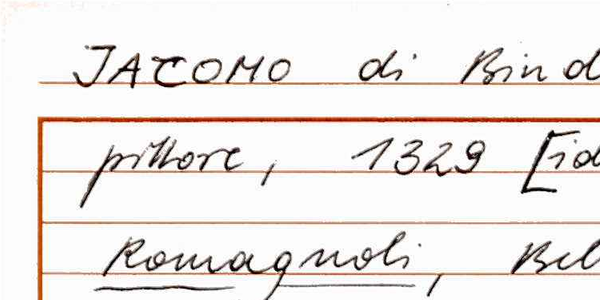 JACOMO di Bind
pittore, 1329 [id
Romagnoli, Bel